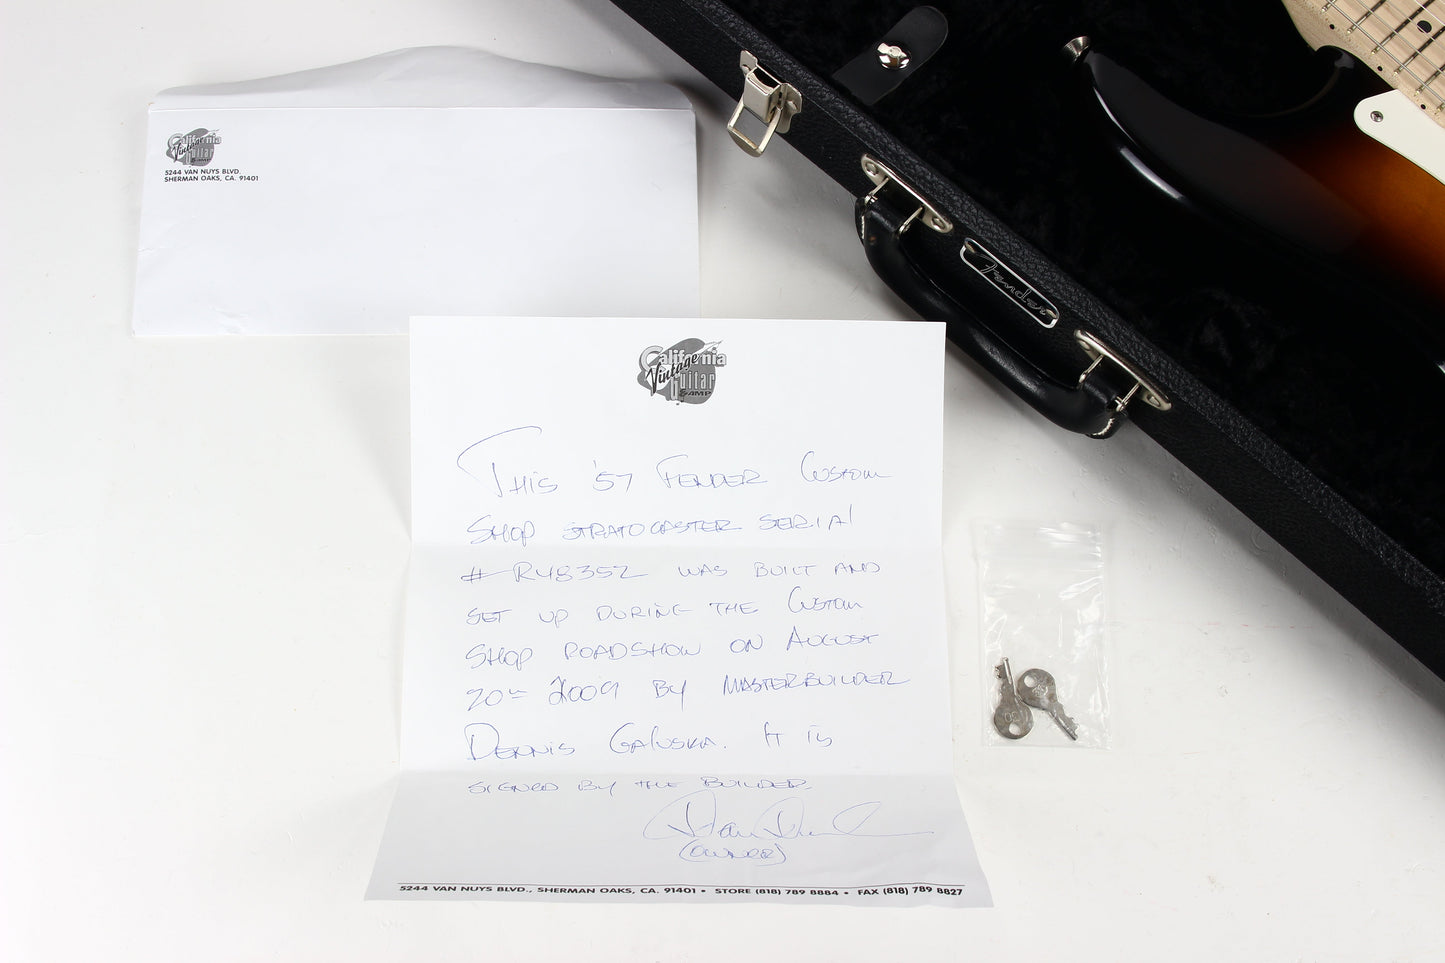 California
Vintage
Guitar
& AMP
5244 VAN NUYS BLVD.
SHERMAN OAKS, CA. 91401
Fender
California
Vintage
Guitar
& AMP
THIS '57 FENDER CUSTOM
SHOP STRATOCASTER SERIAL
# R48352 WAS BUILT AND
SET UP DURING THE CUSTOM
SHOP ROADSHOW ON AUGUST
20TH 2009 BY MASTERBUILDER
DENNIS GALUSKA. IT IS
SIGNED BY THE BUILDER.
(OWNER)
5244 VAN NUYS BLVD., SHERMAN OAKS, CA. 91401 • STORE (818) 789 8884 • FAX (818) 789 8827